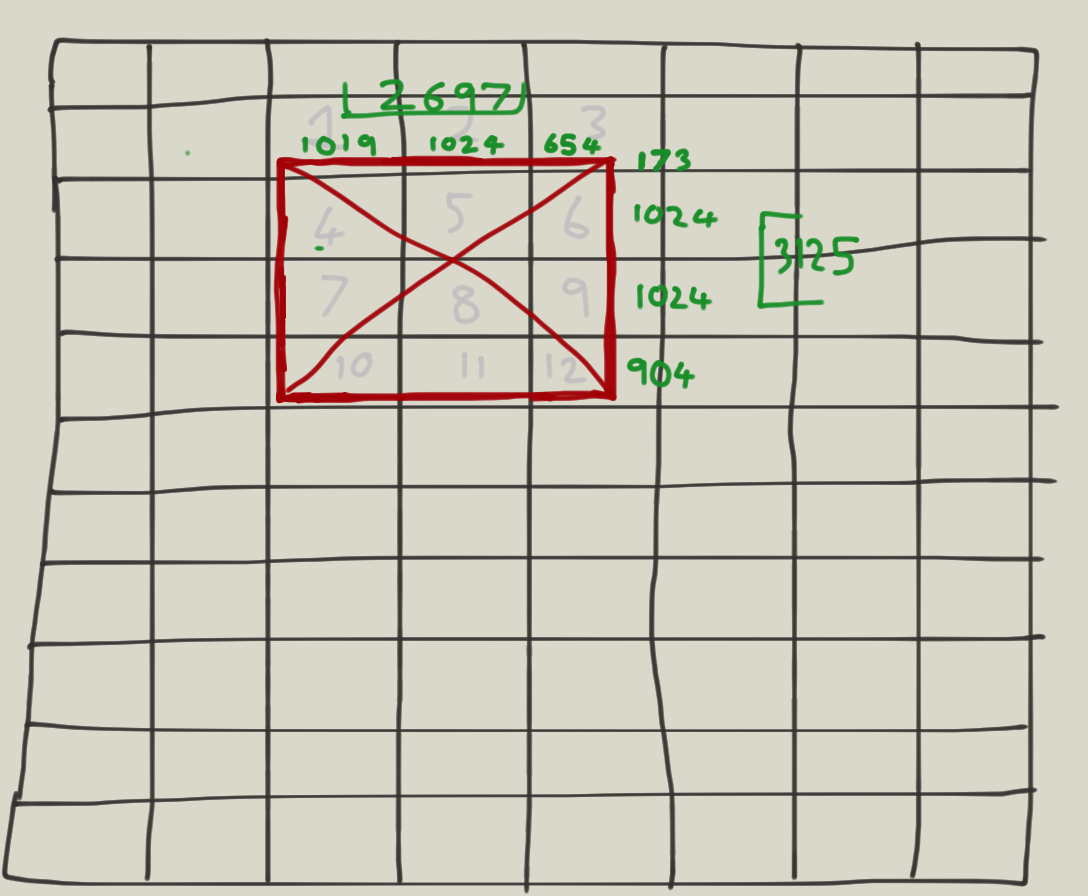 2697
1 2 3
1019 1024 654
173
4 5 6
1024
3125
7 8 9
1024
10 11 12
904